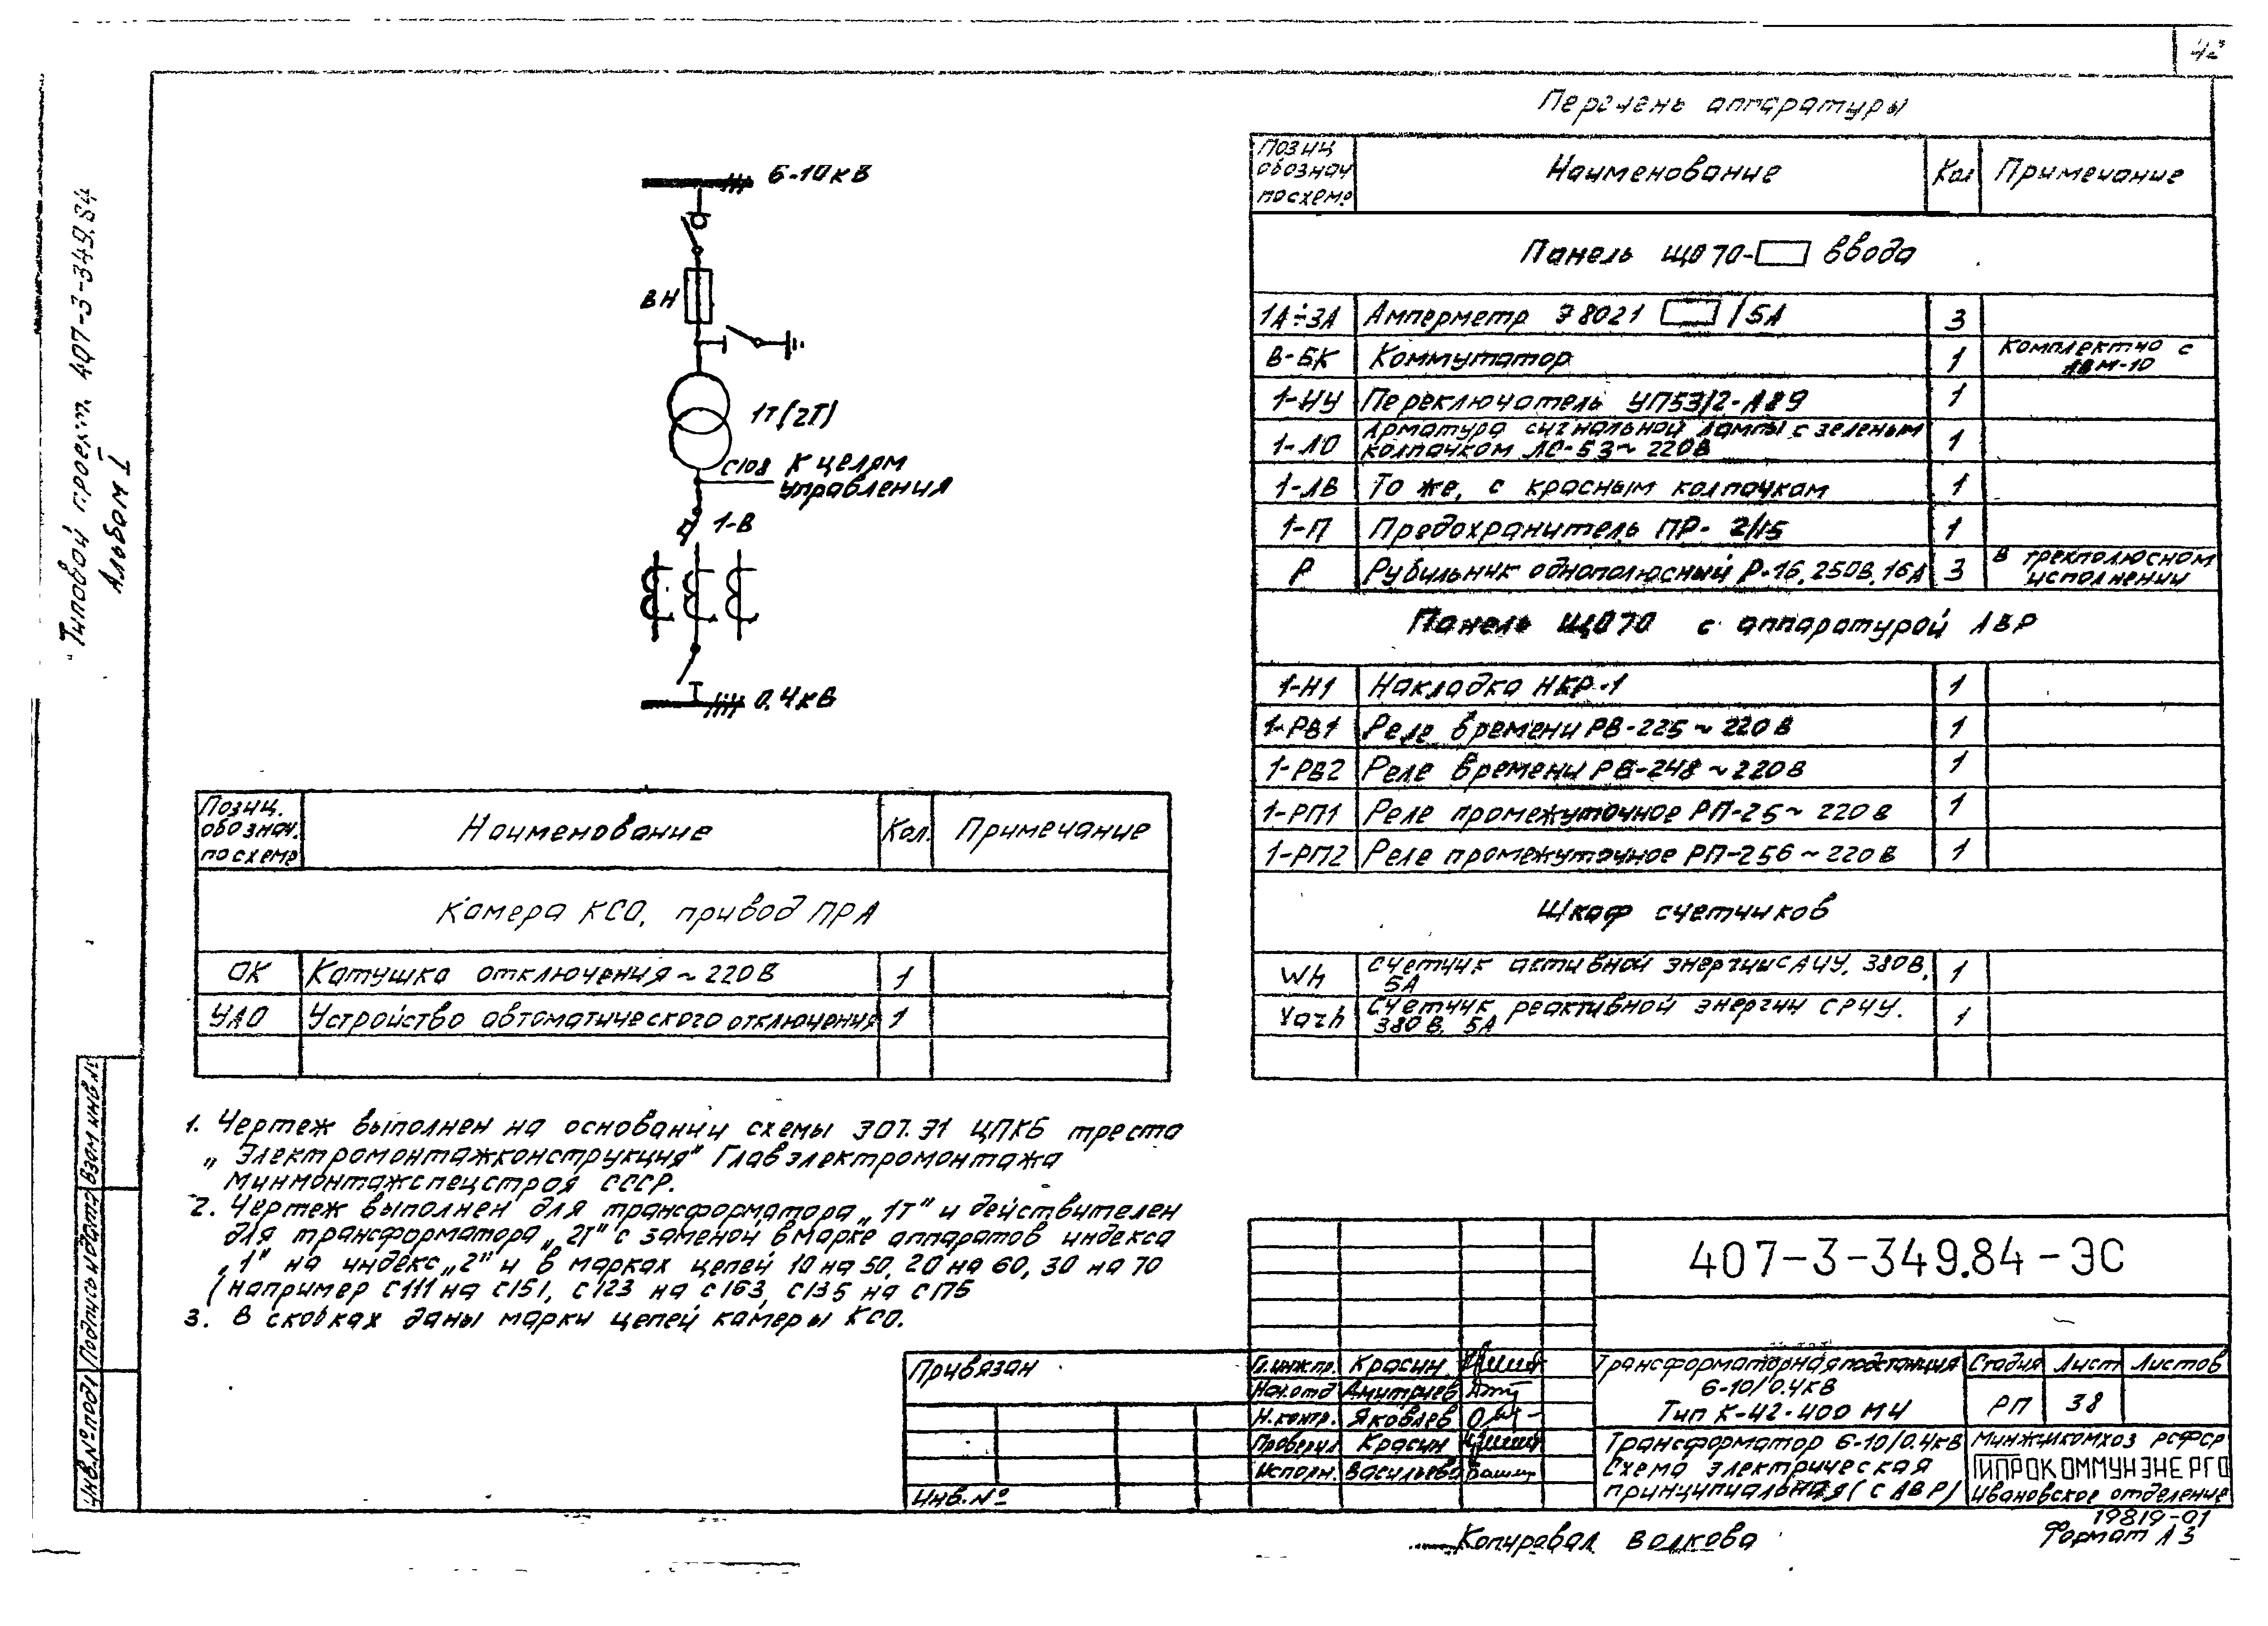 42
Типовой проект 407-3-349.84
Альбом I
6-10кВ
ВН
1Т(2Т)
С108 К цепям
управления
1-В
0.4кВ
Перечень аппаратуры
Позиц
обознач
по схеме
Наименование
Кол
Примечание
Панель ЩО70- ввода
1А÷3А Амперметр Э8021 /5А 3
В-БК Коммутатор 1 Комплектно с
АВМ-10
1-НУ Переключатель УП5312-А89 1
1-ЛО Арматура сигнальной лампы с зеленым
колпачком ЛС-53~220В 1
1-ЛВ То же, с красным колпачком 1
1-П Предохранитель ПР-2/15 1
Р Рубильник однополюсный Р-16, 250В, 16А 3 В трехполюсном
исполнении
Панель ЩО70 с аппаратурой АВР
1-Н1 Накладка НКР-1 1
1-РВ1 Реле времени РВ-225~220В 1
1-РВ2 Реле времени РВ-248~220В 1
1-РП1 Реле промежуточное РП-25~220В 1
1-РП2 Реле промежуточное РП-256~220В 1
Шкаф счетчиков
Wh Счетчик активной энергии САЧУ, 380В,
5А 1
Varh Счетчик реактивной энергии СРЧУ.
380В, 5А 1
Позиц.
обознач.
по схеме
Наименование
Кол.
Примечание
Камера КСО, привод ПРА
ОК Катушка отключения~220В 1
УАО Устройство автоматического отключения 1
1. Чертеж выполнен на основании схемы 307.Э1 ЦПКБ треста
„Электромонтажконструкция" Главэлектромонтажа
Минмонтажспецстроя СССР.
2. Чертеж выполнен для трансформатора „1Т" и действителен
для трансформатора „2Т" с заменой в марке аппаратов индекса
„1" на индекс „2" и в марках цепей 10 на 50, 20 на 60, 30 на 70
(например С111 на С151, С123 на С163, С135 на С175
3. В скобках даны марки цепей камеры КСО.
Взам инв.№
Подпись и дата
Инв.№ подл
Привязан
Инв.№
407-3-349.84-ЭС
Гл.инж.пр. Красин
Нач.отд Дмитриев
Н.контр. Яковлев
Проверил Красин
Исполн. Васильева
Трансформаторная подстанция
6-10/0.4кВ
Тип К-42-400 М4
Стадия Лист Листов
РП 38
Трансформатор 6-10/0.4кВ
Схема электрическая
принципиальная (с АВР)
Минжилкомхоз РСФСР
ГИПРОКОММУНЭНЕРГО
Ивановское отделение
19819-01
Копировал Волкова
Формат А3